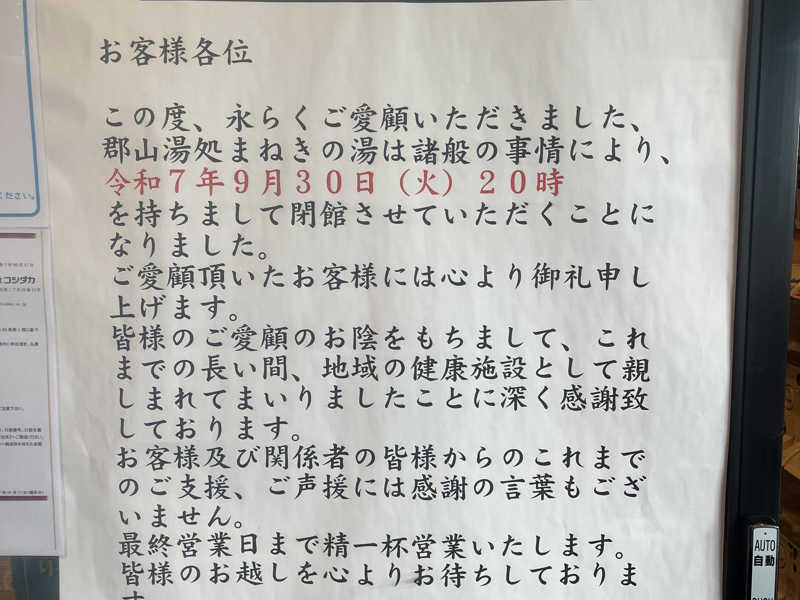 お客様各位
この度、永らくご愛顧いただきました、
郡山湯処まねきの湯は諸般の事情により、
令和７年９月３０日（火）２０時
を持ちまして閉館させていただくことに
なりました。
ご愛顧頂いたお客様には心より御礼申し
上げます。
皆様のご愛顧のお陰をもちまして、これ
までの長い間、地域の健康施設として親
しまれてまいりましたことに深く感謝致
しております。
お客様及び関係者の皆様からのこれまで
のご支援、ご声援には感謝の言葉もござ
いません。
最終営業日まで精一杯営業いたします。
皆様のお越しを心よりお待ちしておりま
す
ください。
コシダカ
AUTO
自動